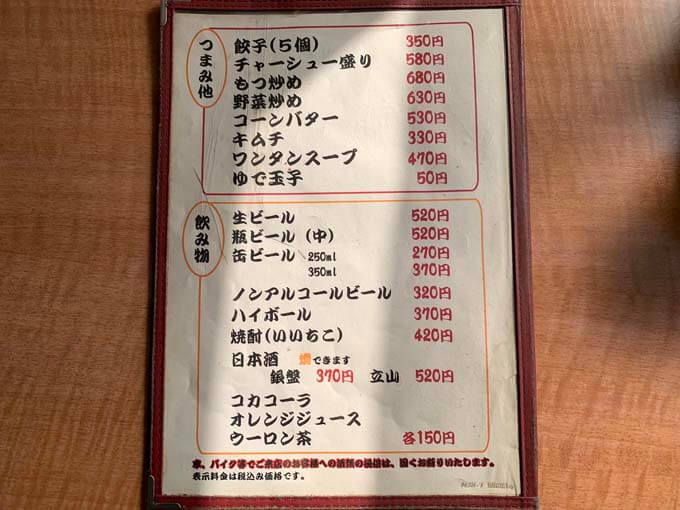 つまみ他
餃子(5個) 350円
チャーシュー盛り 580円
もつ炒め 680円
野菜炒め 630円
コーンバター 530円
キムチ 330円
ワンタンスープ 470円
ゆで玉子 50円
飲み物
生ビール 520円
瓶ビール(中) 520円
缶ビール 250ml 270円
350ml 370円
ノンアルコールビール 320円
ハイボール 370円
焼酎(いいちこ) 420円
日本酒 燗できます
銀盤 370円 立山 520円
コカコーラ
オレンジジュース
ウーロン茶 各150円
車、バイク等でご来店のお客様への酒類の提供は、固くお断りいたします。
表示料金は税込み価格です。